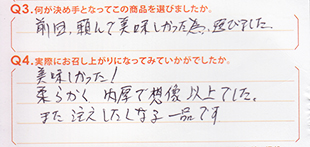 Q3.何が決め手となってこの商品を選びましたか。
前回、頼んで美味しかった為、選びました。
Q4.実際にお召し上がりになってみていかがでしたか。
美味しかった!
柔らかく 肉厚で想像以上でした。
また注文したくなる一品です